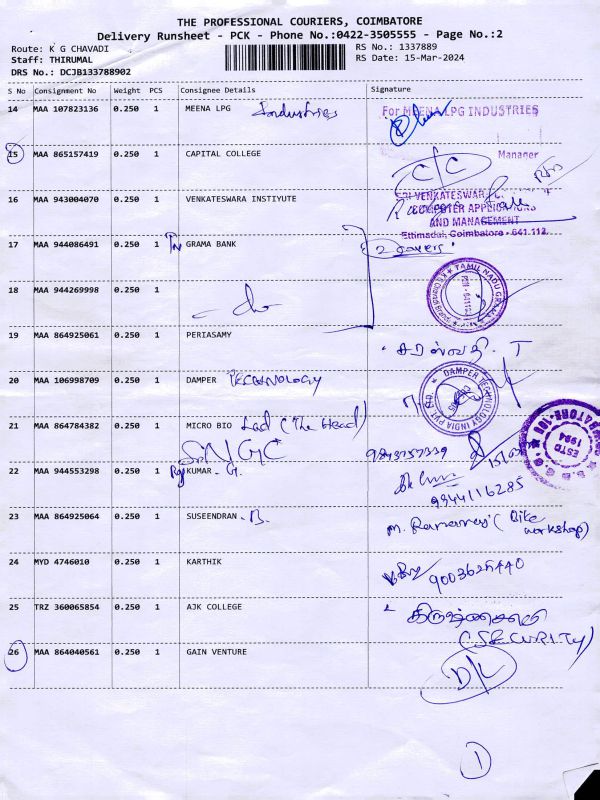 THE PROFESSIONAL COURIERS, COIMBATORE
Delivery Runsheet - PCK - Phone No.:0422-3505555 - Page No.:2
Route: K G CHAVADI
RS No.: 1337889
Staff: THIRUMAL
RS Date: 15-Mar-2024
DRS No.: DCJB133788902
S No Consignment No Weight PCS Consignee Details Signature
14 MAA 107823136 0.250 1 MEENA LPG Industries
For MEENA LPG INDUSTRIES
Manager
15 MAA 865157419 0.250 1 CAPITAL COLLEGE C/C
16 MAA 943004070 0.250 1 VENKATESWARA INSTIYUTE
SRI VENKATESWARA
COMPUTER APPLICATIONS
AND MANAGEMENT
Ettimadai, Coimbatore - 641 112.
17 MAA 944086491 0.250 1 TN GRAMA BANK 2 covers
18 MAA 944269998 0.250 1 - do -
TAMIL NADU GRAMA
19 MAA 864925061 0.250 1 PERIASAMY சரஸ்வதி. T
20 MAA 106998709 0.250 1 DAMPER TECHNOLOGY
DAMPER TECHNOLOGY INDIA PVT LTD
21 MAA 864784382 0.250 1 MICRO BIO Lad (The Head)
SNGC
ESTD
1994
22 MAA 944553298 0.250 1 KUMAR - G.
9944116285
23 MAA 864925064 0.250 1 SUSEENDRAN - B.
(Bike
workshop)
24 MYD 4746010 0.250 1 KARTHIK 9003625440
25 TRZ 360065854 0.250 1 AJK COLLEGE
(SECURITY)
26 MAA 864040561 0.250 1 GAIN VENTURE D/L
1